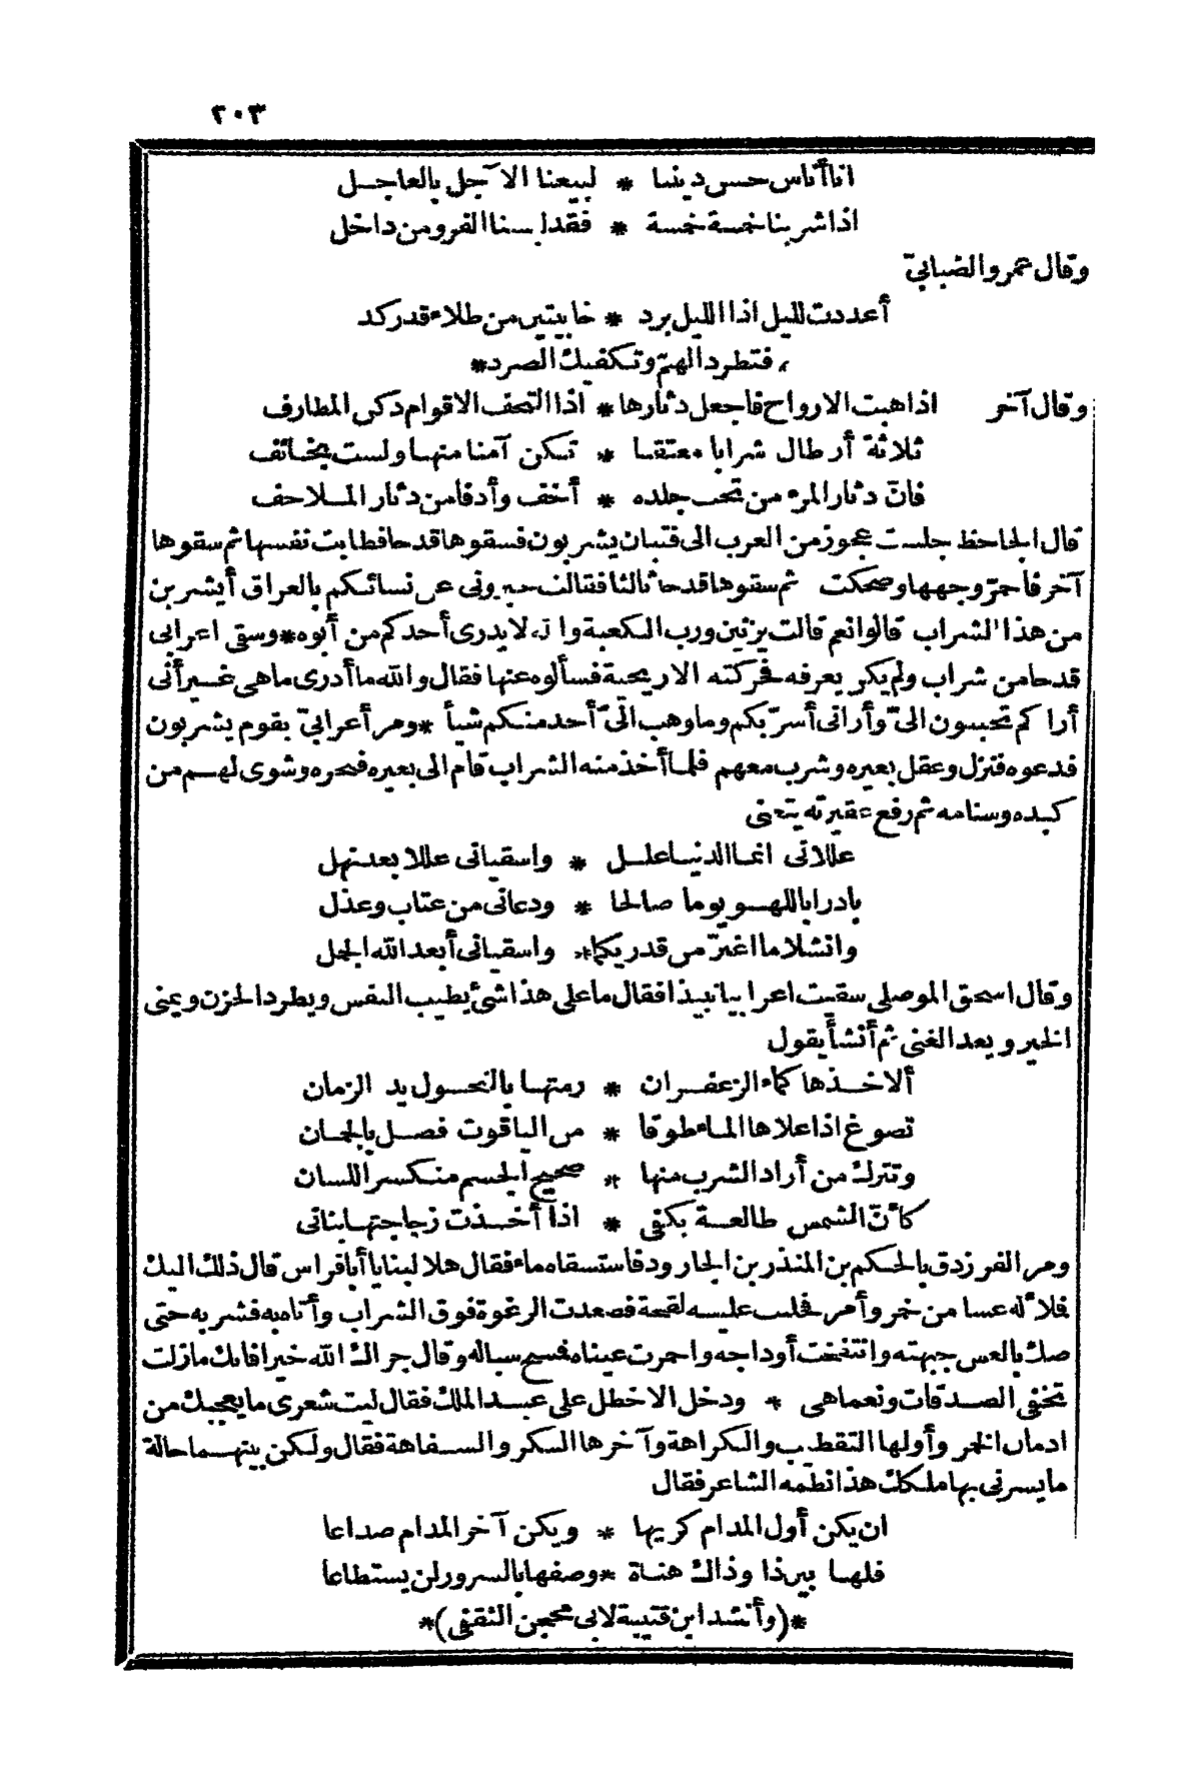 ٢٠٣
انا أناس حسن ديننا * لبيعنا الآجل بالعاجل
اذا شربنا خمسة خمسة * فقد لبسنا الفرو من داخل
وقال عمرو الضبابيّ
أعددت لليل اذا الليل برد * خابيتين من طلاء قد ركد
فتطرد الهمّ وتكفيك الصرد*
وقال آخر اذا هبت الارواح فاجعل دثارها * اذا التحف الاقوام دكن المطارف
ثلاثة أرطال شرابا معتقا * تكن آمنا منها ولست بخائف
فانّ دثار المرء من تحت جلده * أخف وأدفا من دثار الملاحف
قال الجاحظ جلست عجوز من العرب الى فتيان يشربون فسقوها قدحا فطابت نفسها ثم سقوها
آخر فاحمرّ وجهها وضحكت ثم سقوها قدحا ثالثا فقالت خبرونى عن نسائكم بالعراق أيشربن
من هذا الشراب قالوا نعم قالت يزنين ورب الكعبة والله لا يدرى أحدكم من أبوه * وسقى اعرابى
قدحا من شراب ولم يكن يعرفه فحركته الاريحية فسألوه عنها فقال والله ما أدرى ما هى غير أنى
أراكم تحببون الىّ وأرانى أسرّ بكم وما وهب الىّ أحد منكم شيأ * ومر أعرابىّ بقوم يشربون
فدعوه فنزل وعقل بعيره وشرب معهم فلما أخذ منه الشراب قام الى بعيره فنحره وشوى لهم من
كبده وسنامه ثم رفع عقيرته يتغنى
عللانى انما الدنيا علل * واسقيانى عللا بعد نهل
بادرا باللهو يوما صالحا * ودعانى من عتاب وعذل
وانشلا ما اغبرّ من قدريكما * واسقيانى أبعد الله الجمل
وقال اسحق الموصلى سقيت اعرابيا نبيذا فقال ما على هذا شئ يطيب النفس ويطرد الحزن ويمنى
الخير ويعد الغنى ثم أنشأ يقول
ألا خذها كماء الزعفران * رمتها بالنحول يد الزمان
تصوغ اذا علاها الماء طوقا * من الياقوت فصل بالجمان
وتترك من أراد الشرب منها * صحيح الجسم منكسر اللسان
كأنّ الشمس طالعة بكفى * اذا أخذت زجاجتها بنانى
ومر الفرزدق بالحكم بن المنذر بن الجارود فاستسقاه ماء فقال هلا لبنا يا أبا فراس قال ذلك اليك
فملأ له عسا من خمر وأمر فحلب عليه لقحة فصعدت الرغوة فوق الشراب وأتاه به فشربه حتى
صك بالعس جبهته وانتفخت أوداجه واحمرت عيناه فمسح سباله وقال جزاك الله خيرا فانك ما زلت
تخفى الصدقات ونعما هى * ودخل الاخطل على عبد الملك فقال ليت شعرى ما يعجبك من
ادمان الخمر وأولها التقطيب والكراهة وآخرها السكر والسفاهة فقال ولكن بينهما حالة
ما يسرنى بها ملكك هذا نظمه الشاعر فقال
ان يكن أول المدام كريها * ويكن آخر المدام صداعا
فلها بين ذا وذاك هناة * وصفها بالسرور لن يستطاعا
*(وأنشد ابن قتيبة لابى محجن الثقفى)*